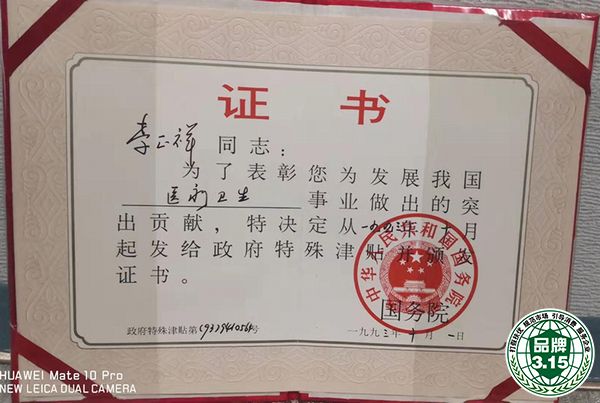 证书
李正祥 同志：
为了表彰您为发展我国
医疗卫生 事业做出的突
出贡献，特决定从一九九三年十月
起发给政府特殊津贴并颁发
证书。
中华人民共和国国务院
国务院
政府特殊津贴第(93)941056号
一九九三年十月一日
HUAWEI Mate 10 Pro
NEW LEICA DUAL CAMERA
品牌
3.15